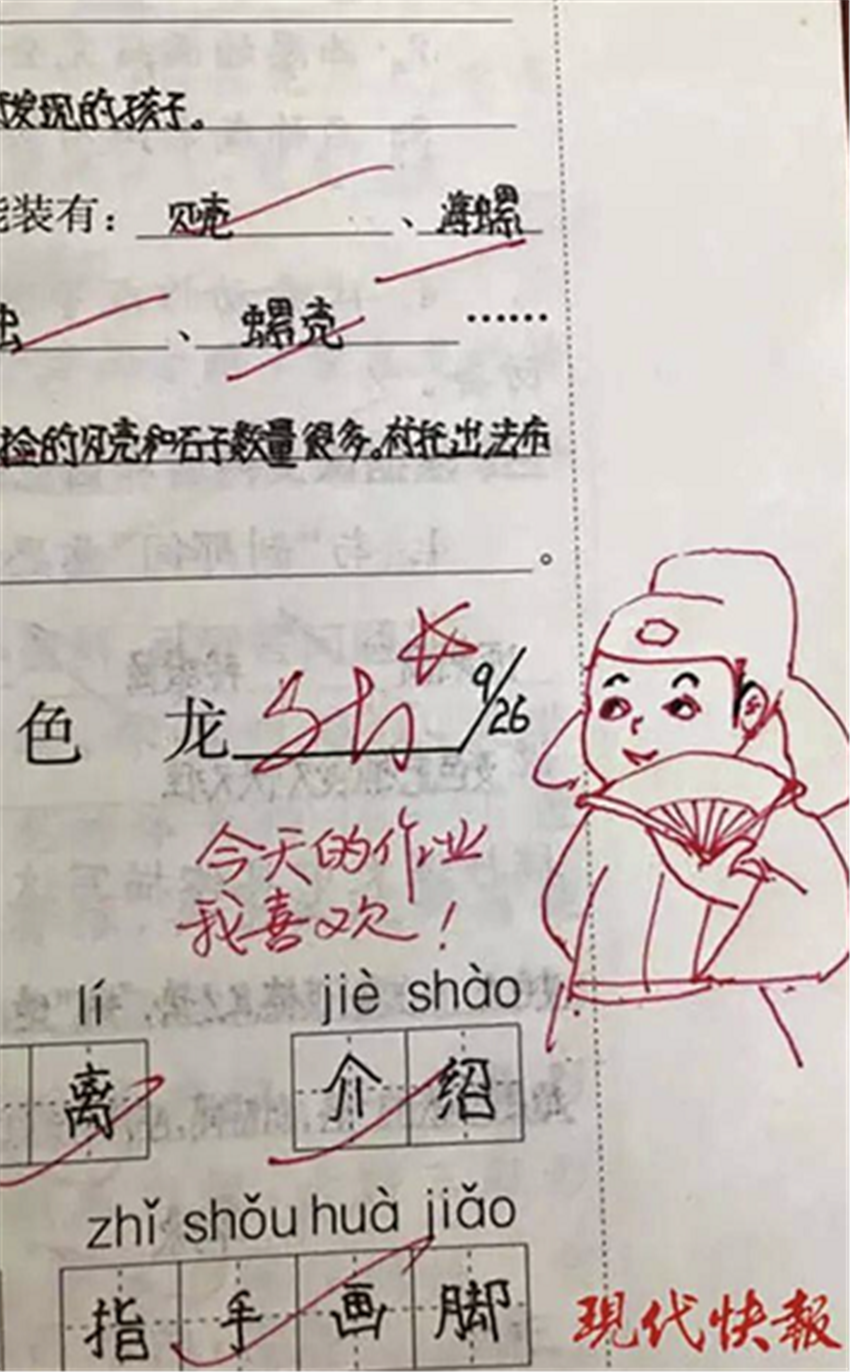 发现的孩子。
能装有：贝壳、海螺
、螺壳……
捡的贝壳和石子数量很多。衬托出法布
。
色 龙 9/26
今天的作业
我喜欢！
lí jiè shào
离 介 绍
zhǐ shǒu huà jiǎo
指 手 画 脚
現代快報